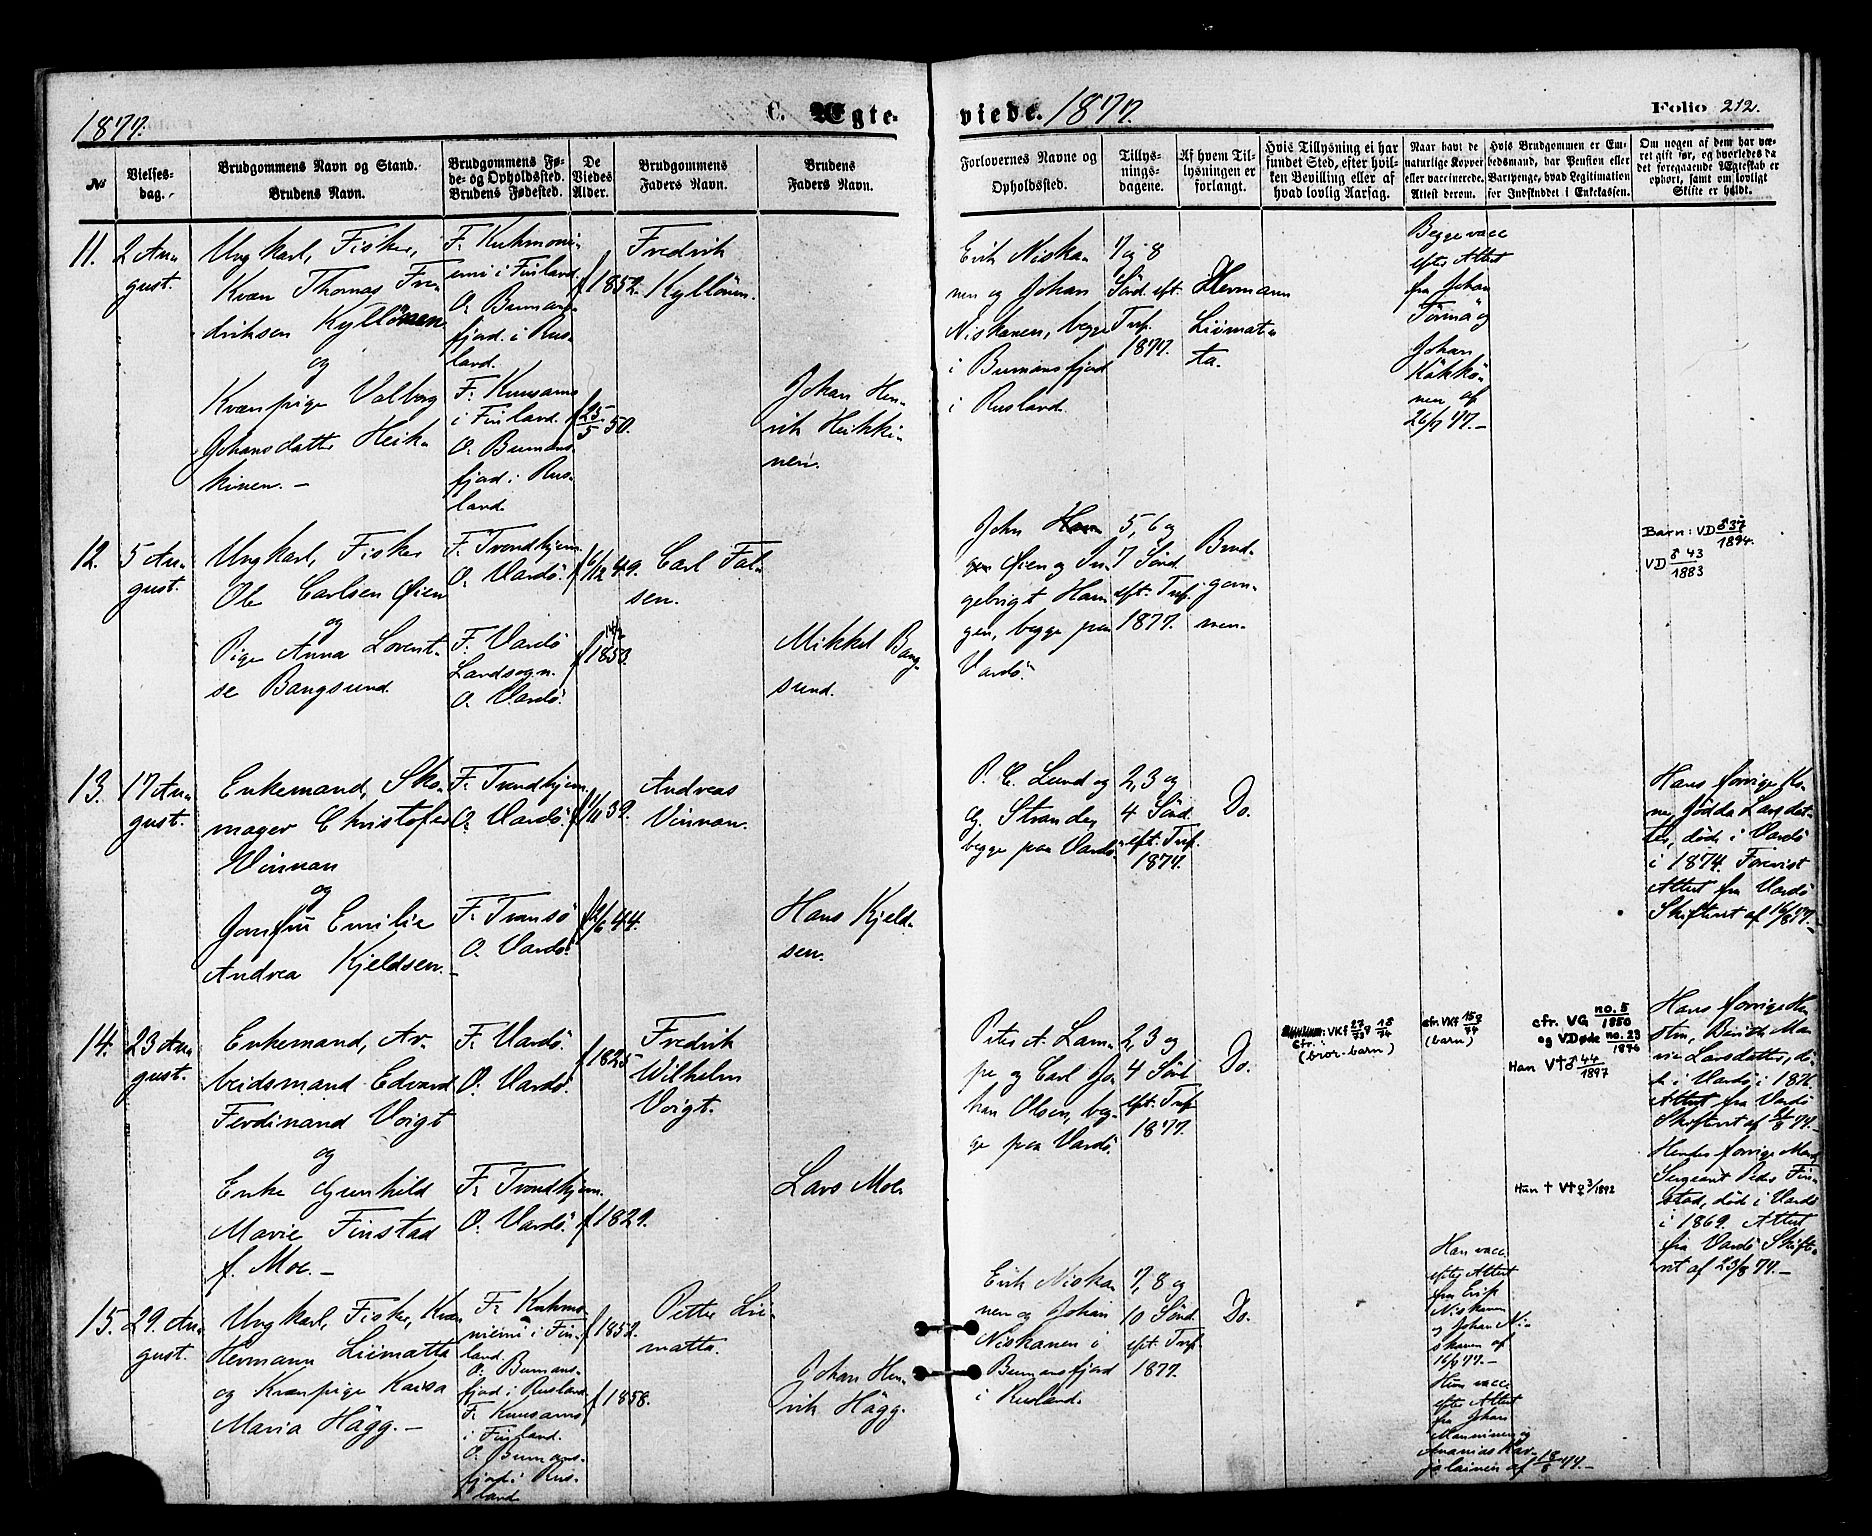 1877.
C. Ægte-
viede.
1877.
Folio 212.
№
Vielses-
dag.
Brudgommens Navn og Stand.
Brudens Navn.
Brudgommens Fø-
de- og Opholdssted.
Brudens Fødested.
De
Viedes
Alder.
Brudgommens
Faders Navn.
Brudens
Faders Navn.
Forlovernes Navne og
Opholdssted.
Tillys-
nings-
dagene.
Af hvem Til-
lysningen er
forlangt.
Hvis Tillysning ei har
fundet Sted, efter hvil-
ken Bevilling eller af
hvad lovlig Aarsag.
Naar havt de
naturlige Kopper
eller vaccinerede.
Attest derom.
Hvis Brudgommen er Em-
bedsmand, har Pension eller
Vartpenge, hvad Legitimation
for Indskuddet i Enkekassen.
Om nogen af dem har væ-
ret gift før, og hvorledes da
det foregaaende Ægteskab er
ophørt, samt om lovligt
Skifte er holdt.
11.
2 Au-
gust.
Ungkarl, Fisker,
Kvæn Thomas Fre-
driksen Kyllönen
og
Kvænpige Valborg
Johansdatter Heik-
kinen. -
F. Kuhmoni-
emi i Finland.
O. Bumans-
fjord i Rus-
land.
F. Kuusamo
i Finland.
O. Bumans-
fjord i Rus-
land
f 1852.
f 25/5 50.
Fredrik
Kyllönen.
Johan Hen-
rik Heikki-
nen.
Erik Niska-
nen og Johan
Niskanen, begge
i Bumansfjord
i Rusland.
7 og 8
Sönd. eft.
Tref.
1877.
Hermann
Liimat-
ta.
Begge vacc
efter Attest
fra Johan
Törmä og
Johan
Kökkö-
nen af
26/7 77. -
12.
5 Au-
gust.
Ungkarl, Fisker
Ole Carlsen Øien
og
Pige Anna Lorent-
se Bangsund.
F. Trondhjem
O. Vardö.
F. Vardö
Landsogn.
O. Vardö.
f 6/12 49.
f 14/2
1853.
Carl Fal-
sen.
Mikkel Bang-
sund.
John
Øien og In-
gebrigt Ham
gen, begge paa
Vardö.
5, 6 og
7 Sönd.
eft. Tref.
1877.
Brud-
gom-
men.
Barn: VD ♂ 37/1894.
VD ♂ 43/1883
13.
17 Au-
gust.
Enkemand, Sko-
mager Christofer
Vinnan
og
Jomfru Emilie
Andrea Kjeldsen. -
F. Trondhjem
O. Vardö.
F. Tromsö
O. Vardö.
f 1/11 39.
f 2/6 44.
Andreas
Vinnan.
Hans Kjeld-
sen.
P. C. Lund og
G. Strander
begge paa Vardö.
2, 3 og
4 Sönd.
eft. Tref.
1877.
Do.
Hans forrige Ko-
ne, Jödda Larsdat-
ter, döde i Vardö
i 1874. Forevist
Attest fra Vardö
Skifteret af 16/8 77. -
14.
23 Au-
gust.
Enkemand, Ar-
beidsmand Edvard
Ferdinand Voigt
og
Enke Gunhild
Marie Finstad
f. Moe. -
F. Vardö.
O. Vardö.
F. Trondhjem.
O. Vardö.
f 1825.
f 1829.
Fredrik
Wilhelm
Voigt.
Lars Moe.
Peter A. Lam-
pe og Carl Jo-
han Olsen, beg-
ge paa Vardö.
2, 3 og
4 Sönd
eft. Tref.
1877.
Do.
Cfr.:
(bror-barn)
cfr. VKf 15♀/74
(barn)
cfr. VG no. 5/1850
og VDøde no. 23/1876
Han V† ♂ 44/1897
Hun † V† ♀ 3/1892
Hans forrige Hu-
stru, Berith Ma-
rie Larsdatter, dö-
de i Vardö i 1876.
Attest fra Vardö
Skifteret af
Hendes forrige Mand,
Sergeant Peder Fin-
stad, döde i Vardö
i 1869. Attest
fra Vardö Skifte-
ret af 23/8 77. -
15.
29. Au-
gust.
Ungkarl, Fisker, Kvæn
Hermann Liimatta
og Kvænpige Kaisa
Maria Hägg. -
F. Kuhmo-
niemi i Fin-
land.
O. Bumans-
fjord i Rusland.
F. Kuusamo
i Finland.
O. Bumans-
fjord i Rus-
land
f 1852.
f 1858.
Petter Lii-
matta.
Johan Hen-
rik Hägg.
Erik Niska-
nen og Johan
Niskanen i
Bumansfjord
i Rusland.
7, 8 og
10 Sönd.
eft. Tref.
1877.
Do.
Han vacc.
efter Attest
fra Erik
Niskanen
og Johan Ni-
skanen af
16/7 77. -
Hun vacc.
efter Attest
fra Johan
Manninen og
Ananias Kar-
jalainen af 18/8 77. -